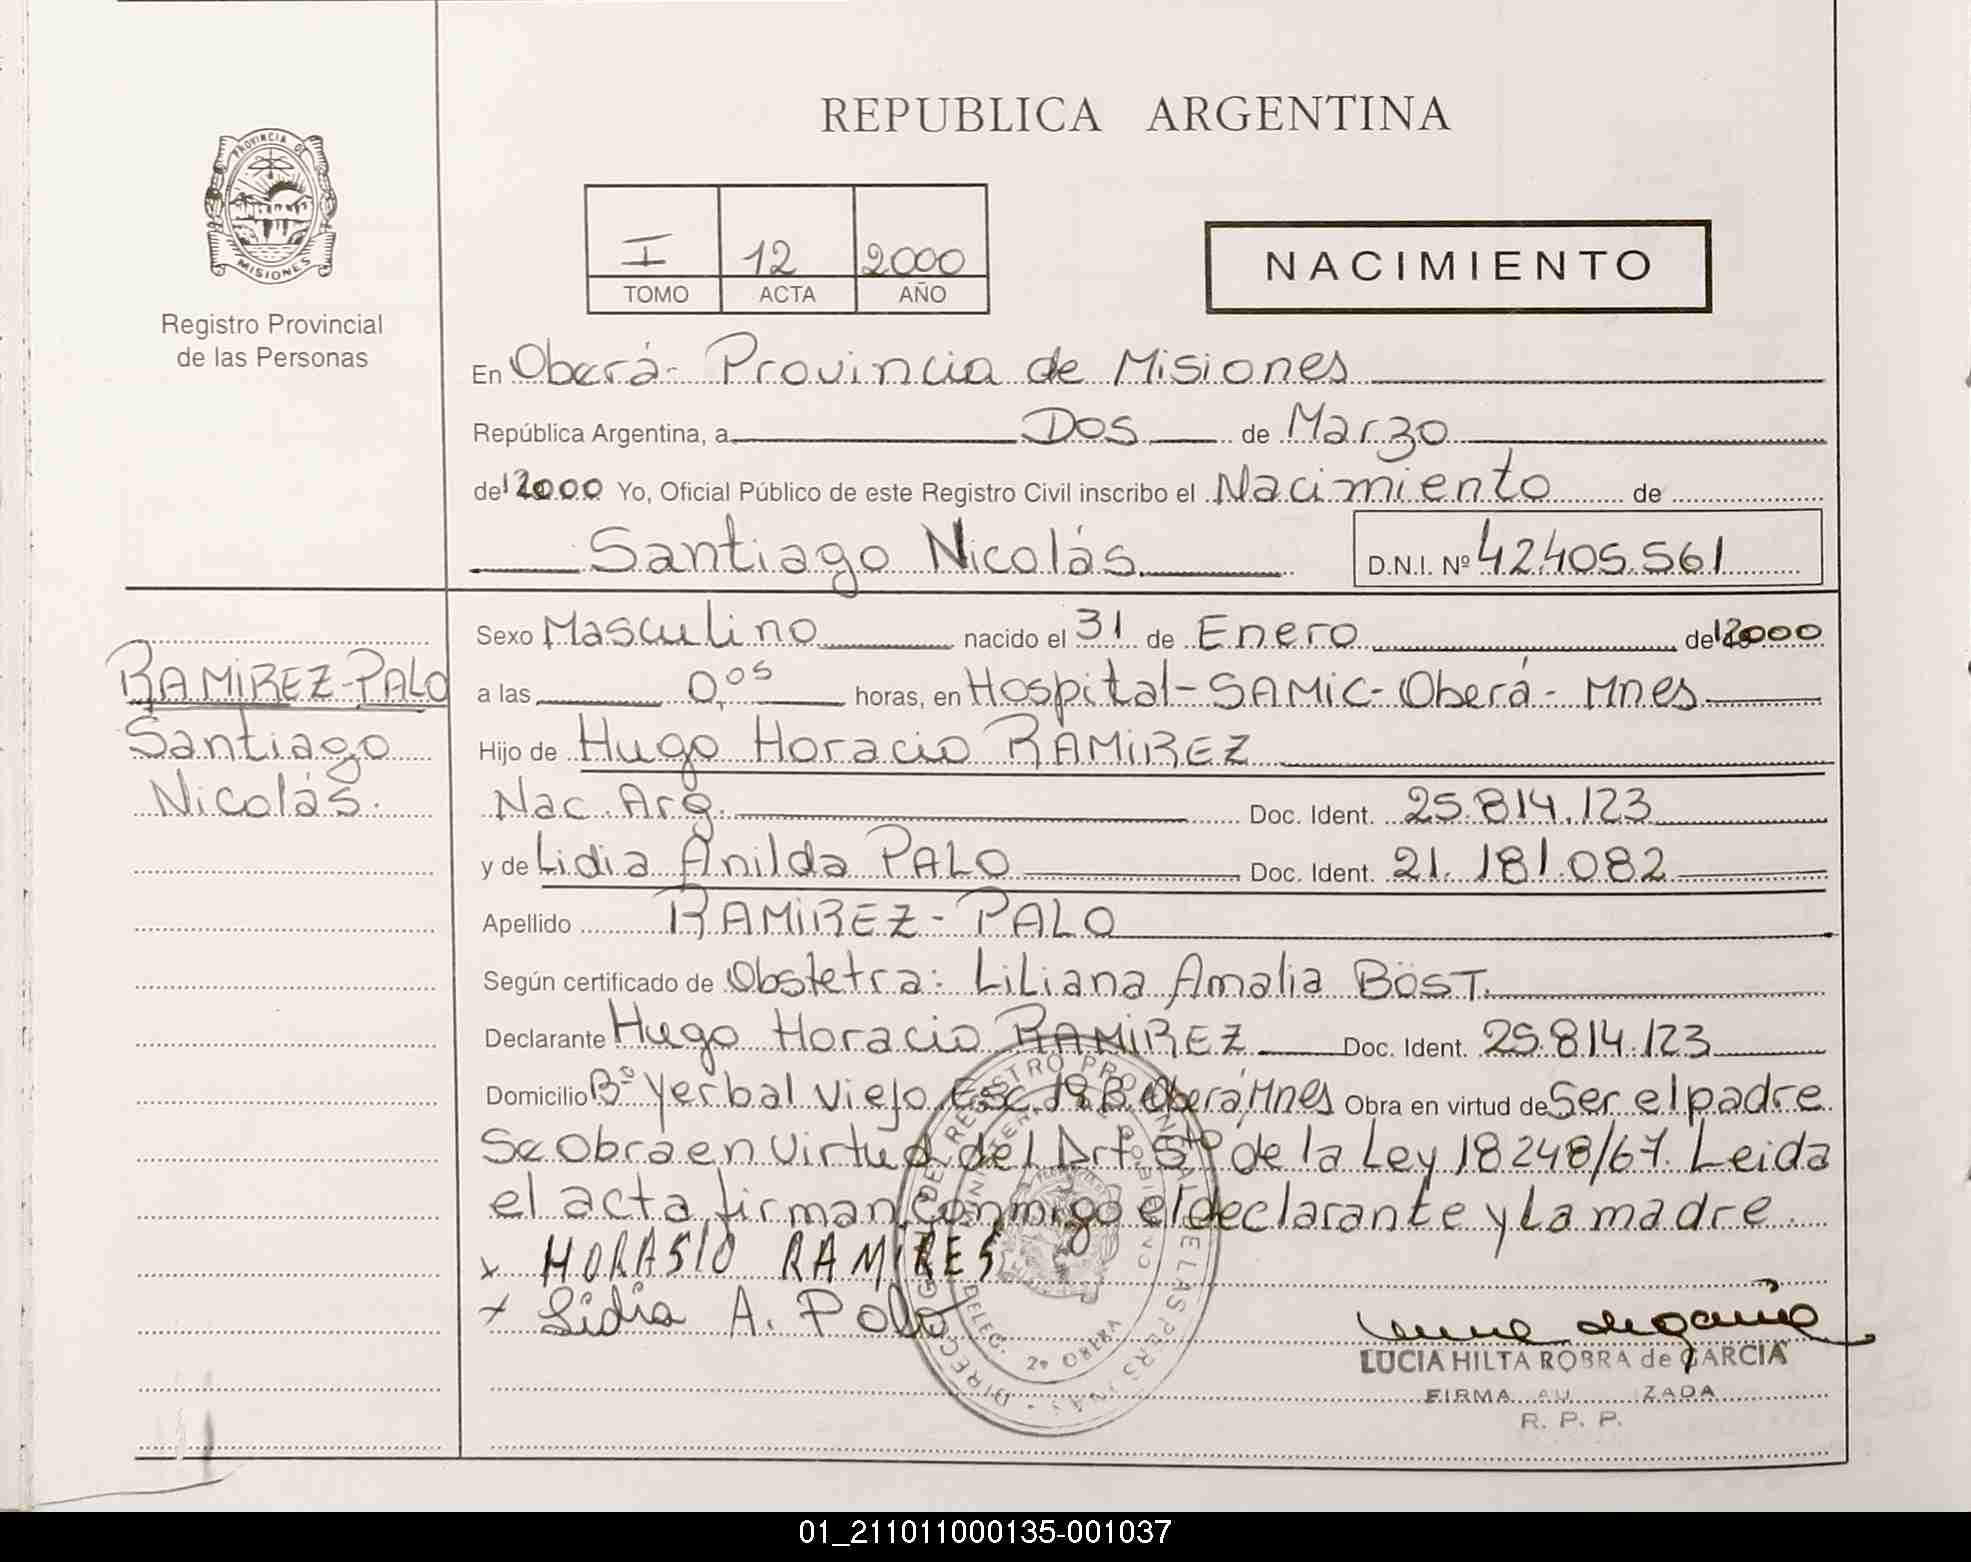 REPUBLICA ARGENTINA
PROVINCIA DE MISIONES
Registro Provincial
de las Personas
I 12 2000
TOMO ACTA AÑO
NACIMIENTO
En Oberá- Provincia de Misiones
República Argentina, a Dos de Marzo
de 2000 Yo, Oficial Público de este Registro Civil inscribo el Nacimiento de
Santiago Nicolás D.N.I. Nº 42.405.561
Sexo Masculino nacido el 31 de Enero de 2000
RAMIREZ-PALO
Santiago
Nicolás.
a las 0,05 horas, en Hospital-SAMIC-Oberá- Mnes
Hijo de Hugo Horacio RAMIREZ
Nac. Arg. Doc. Ident. 25.814.123
y de Lidia Anilda PALO Doc. Ident. 21.181.082
Apellido RAMIREZ-PALO
Según certificado de Obstetra: Liliana Amalia BÖST.
Declarante Hugo Horacio RAMIREZ Doc. Ident. 25.814.123
Domicilio Bº Yerbal Viejo, Esc. 19B. Oberá, Mnes Obra en virtud de Ser el padre
Se Obra en virtud del Art. 5to de la Ley 18248/67. Leida
el acta, firman conmigo el declarante y La madre.
x HORASIO RAMIRES
x Lidia A. Palo
DIRECC. G. DE REGISTRO PROVINCIAL DE LAS PERSONAS
MINISTERIO DE GOBIERNO
DELEG. 2ª OBERA
LUCIA HILTA ROBRA de GARCIA
FIRMA AU ZADA
R. P. P.
01_211011000135-001037